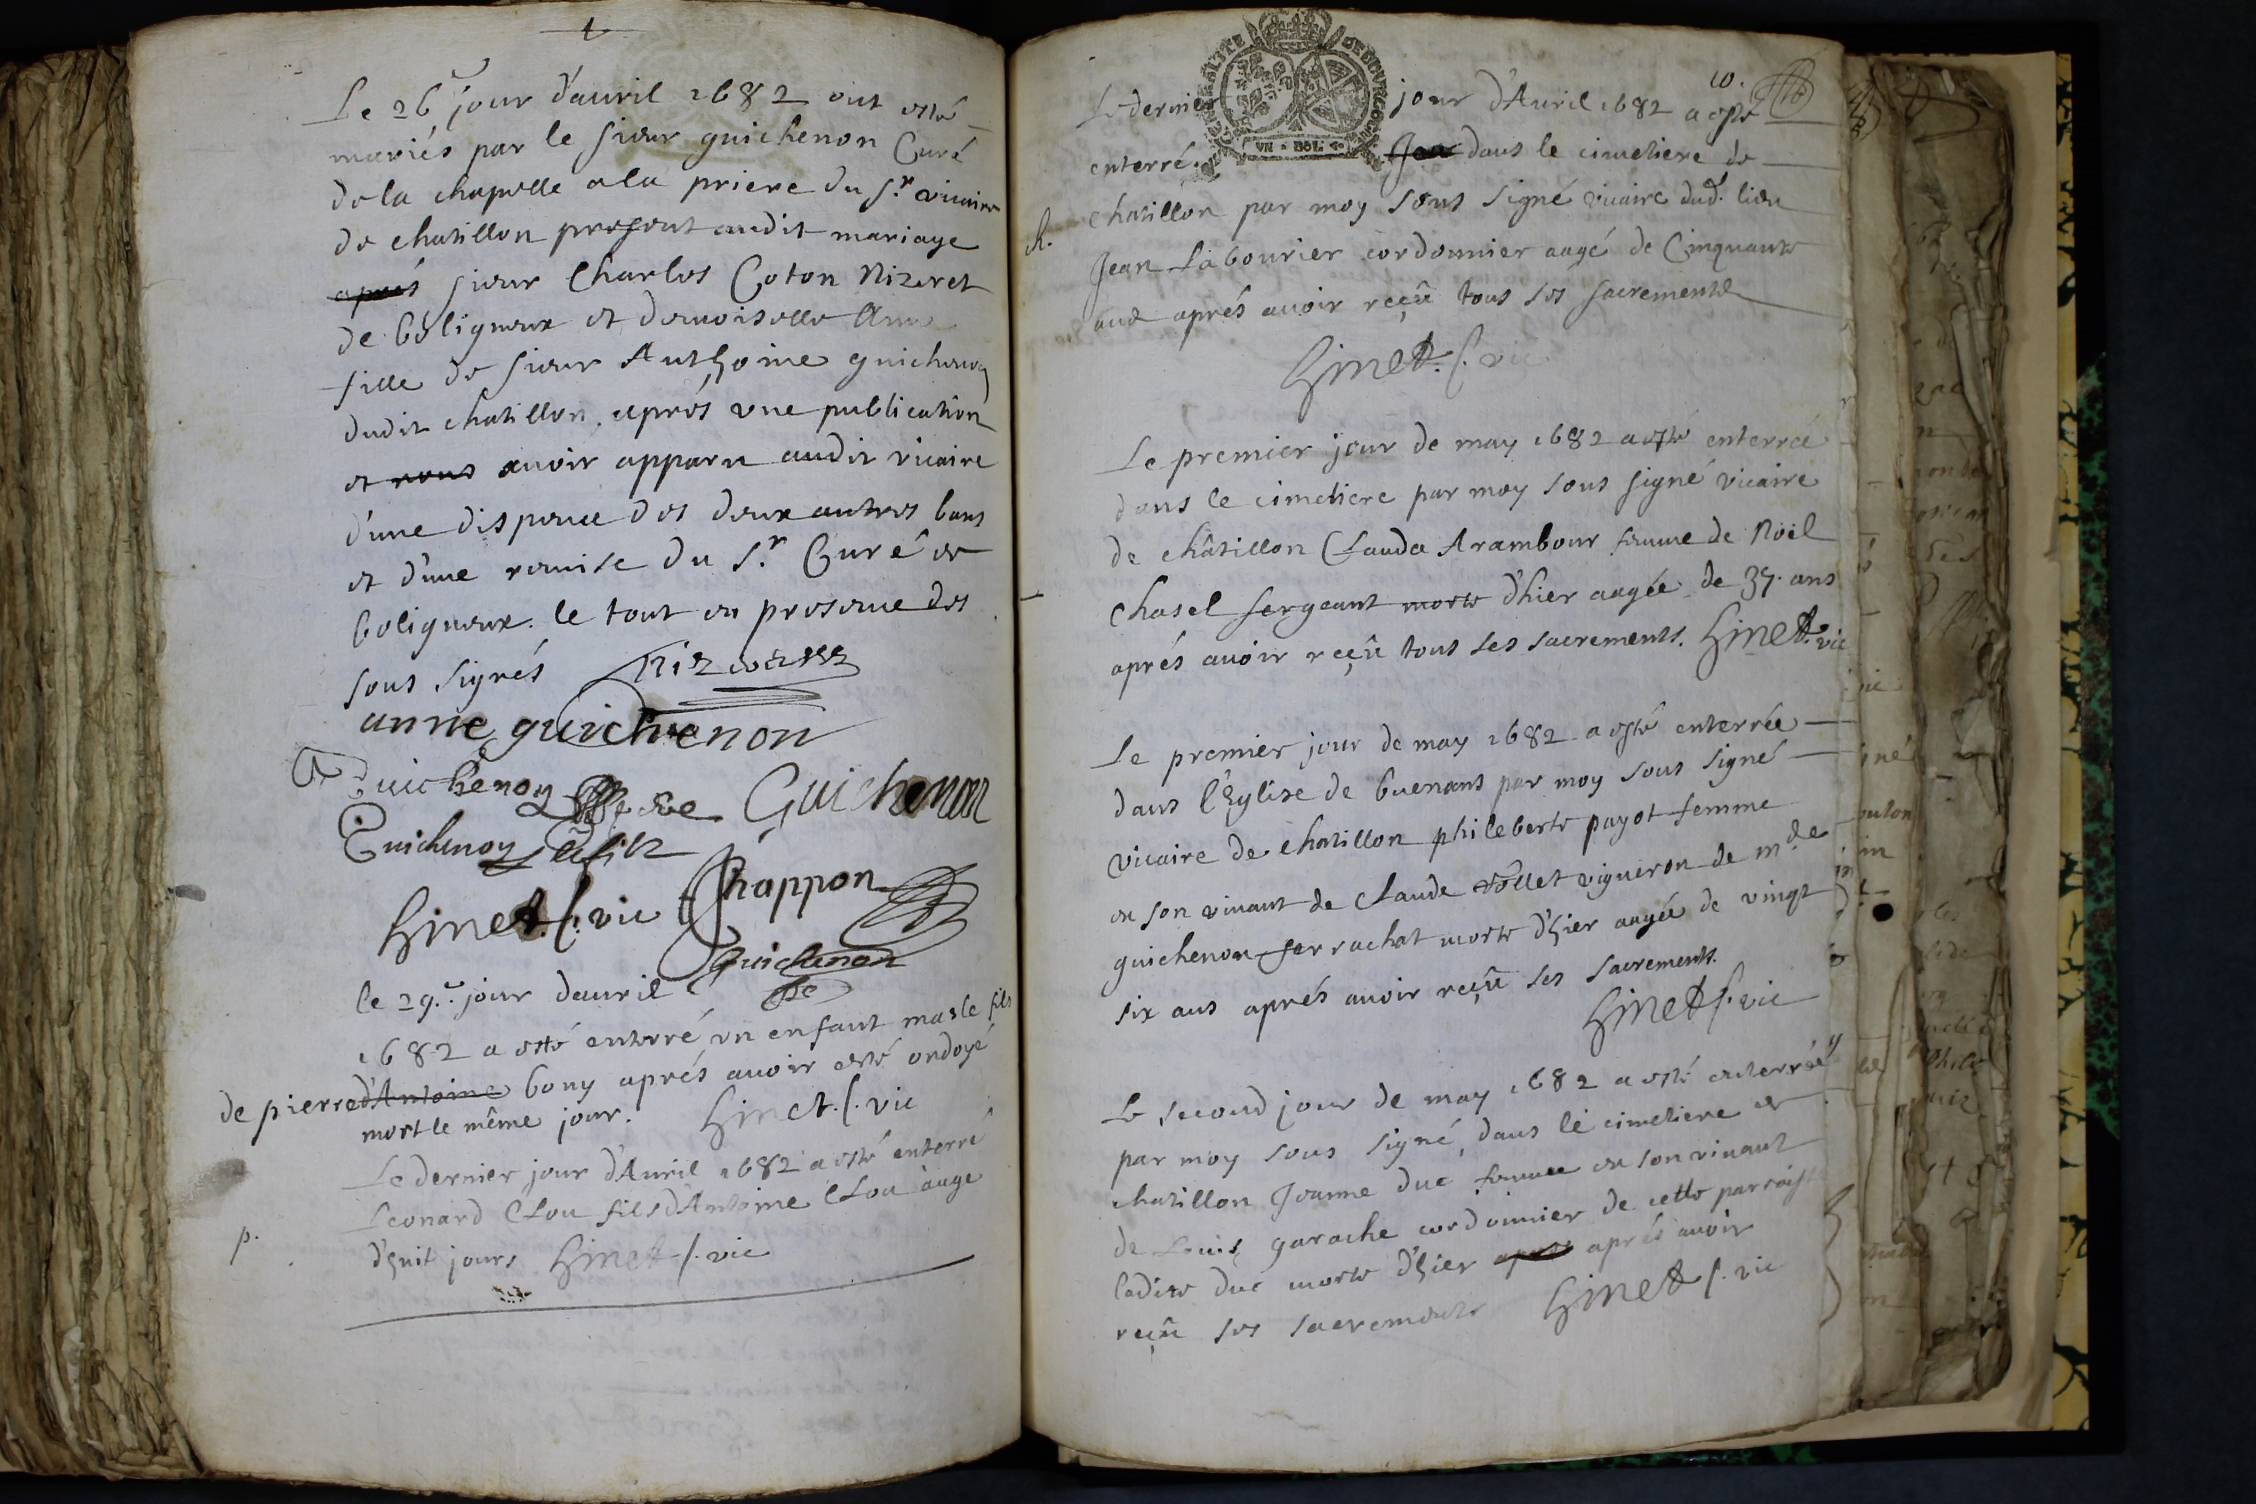 Le 26e jour d'auril 1682 ont esté
mariés par le sieur guichenon Curé
de la chapelle a la priere du Sr. vicaire
de chatillon present audit mariage
aprés sieur Charles Coton Nizeret
de boligneux et demoiselle Anne
fille de sieur Anthoine guichenon
dudit chatillon, aprés vne publication
et nous avoir apparu audit vicaire
d'une dispence des deux autres bans
et d'une remise du Sr. Curé de
boligneux. le tout en presence des
sous signés Nizeret
anne guichenon
Guichenon Guichenon
Guichenon
Ginet. s. vic Chappon
Guichenon
le 29e. jour dauril
1682 a esté enterré vn enfant masle fils
de pierre d'Antoine bony aprés auoir esté ondoyé
mort le même jour. Ginet. s. vic
Le dernier jour d'Auril 1682 a esté enterré
Leonard Clou fils d'Antoine Clou auge
p.
d'huit jours Ginet s. vic
10.
GENERALITE DE BOVRGOGNE
VN SOL
Le dernier jour d'Auril 1682 a esté
enterré. Jean dans le cimetiere de
chatillon par moy sous signé vicaire dud. lieu
ch.
Jean Labourier cordonnier aagé de Cinquante
ans aprés auoir reçû tous ses sacrements
Ginet. s. vic
Le premier jour de may 1682 a esté enterrée
dans le cimetiere par moy sous signé vicaire
de châtillon Clauda Arambour femme de Noël
Chasel sergeant morte d'hier aagée de 37. ans
aprés auoir reçû tous ses sacrements. Ginet. vic
Le premier jour de may 1682 a esté enterrée
dans l'Eglise de buenans par moy sous signé
vicaire de chatillon phileberte payot femme
en son viuant de Claude vollet vigneron de md.e
guichenon ferrachat morte d'hier aagée de vingt
six ans aprés auoir reçû ses sacrements.
Ginet s. vic
Le second jour de may 1682 a esté enterrée
par moy sous signé, dans le cimetiere de
chatillon Jeanne duc femme en son viuant
de Louis garache cordonnier de cette parroisse
ladite duc morte d'hier aprés aprés auoir
reçû ses sacrements Ginet s. vic